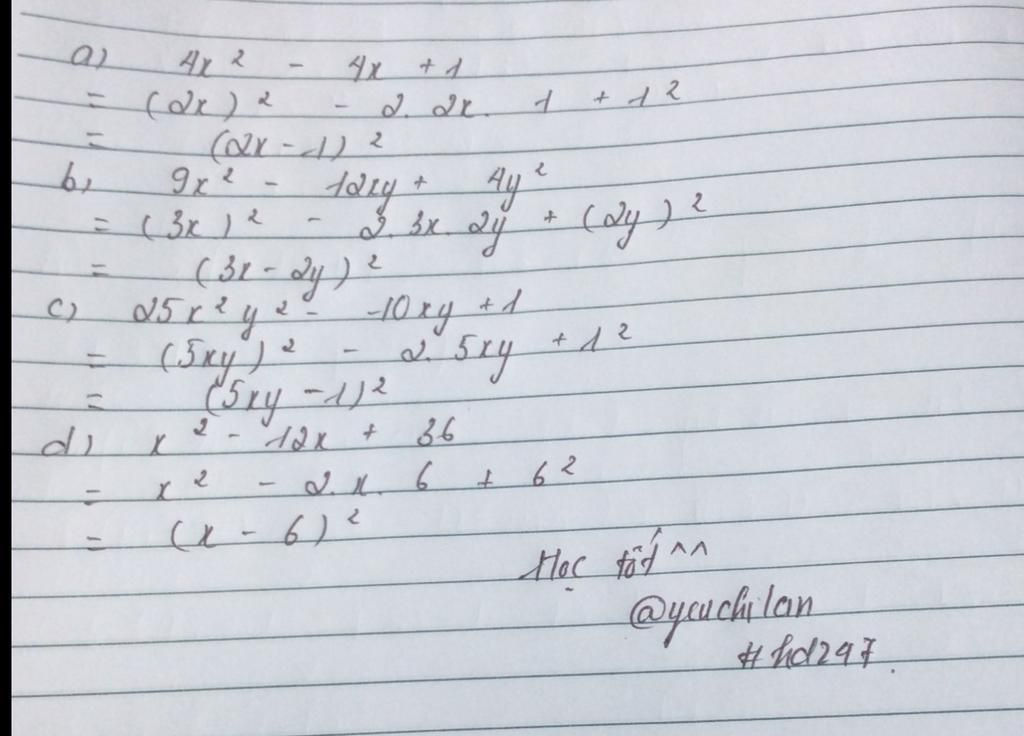 a) 4x² - 4x + 1
= (2x)² - 2. 2x. 1 + 1²
= (2x - 1)²
b, 9x² - 12xy + 4y²
= (3x)² - 2. 3x. 2y + (2y)²
= (3x - 2y)²
c) 25x²y² - -10xy + 1
= (5xy)² - 2. 5xy + 1²
= (5xy - 1)²
d) x² - 12x + 36
= x² - 2. x. 6 + 6²
= (x - 6)²
Học tốt ^^
@yeuchilan
#hd247.